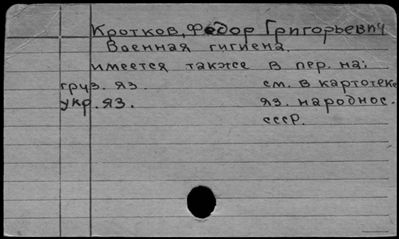 Кротков, Федор Григорьевич
Военная гигиена.
имеется также в пер. на:
груз. яз. см. в картотеке
укр. яз. яз. народнос.
СССР.